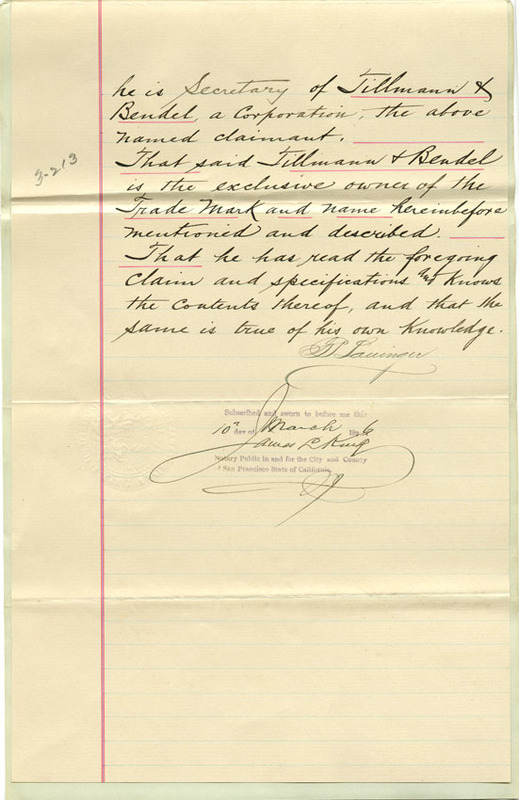 he is Secretary of Tillmann &
Bendel, a Corporation, the above
named claimant.
That said Tillmann & Bendel
is the exclusive owner of the
Trade Mark and name hereinbefore
mentioned and described.
That he has read the foregoing
Claim and specifications and Knows
the Contents thereof, and that the
same is true of his own Knowledge.
3-213
Subscribed and sworn to before me this
10th day of March 189
James L King
Notary Public in and for the City and County
of San Francisco State of California